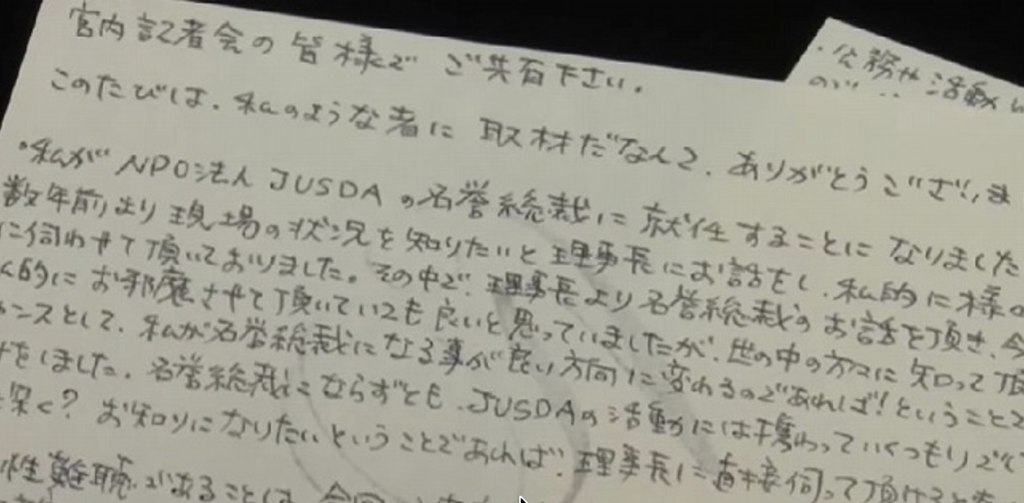 宮内記者会の皆様で ご共有下さい。
このたびは、私のような者に 取材だなんて、ありがとうござい、ま
・私が NPO法人 JUSDA の名誉総裁に就任することに なりました
数年前より 現場の状況を知りたいと 理事長にお話をし、私的に様の
に伺わせて頂いておりました。その中で、理事長より名誉総裁のお話を頂き、今
的に お邪魔させて頂いていても良いと思っていましたが、世の中の方々に知って頂
ンスとして、私が名誉総裁になる事が良い方向に変れるのであれば!ということで
をしました。名誉総裁にならずとも、JUSDAの活動には携わっていくつもりで
深く? お知りになりたいということであれば、理事長に直接伺って頂ける
性難聴であることは、今回
・公務や活動
ので